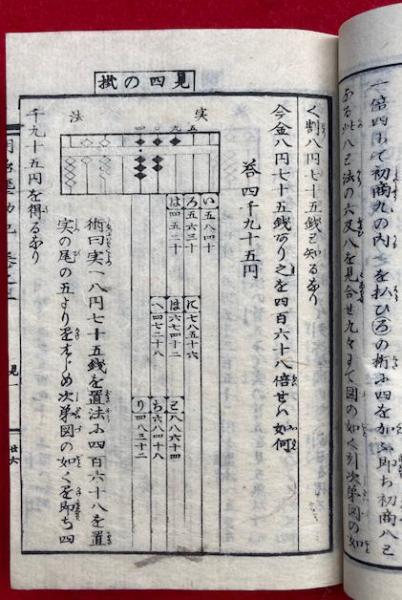 一倍四にて初商九の内へを払ひろの術に四を加ふ即ち初商八と
ふる此八と法の六又八を見合せ九々にて図の如く引次第図の次
見四の掛
く割八円七十五銭と知るなり
今金八円七十五銭あり之を四百六十八倍せバ如何
答四千九十五円
実
法
五
九
い五八四十
ろ五六三十
は四五二十
に七八五十六
ほ六七四十二
へ四七二十八
と八八六十四
ち六八四十八
り四八三十二
術曰実へ八円七十五銭を置法に四百六十八を置
実の尾の五より をはじめ次第図の如く を即ち四
千九十五円を得るなり
見一
廿六